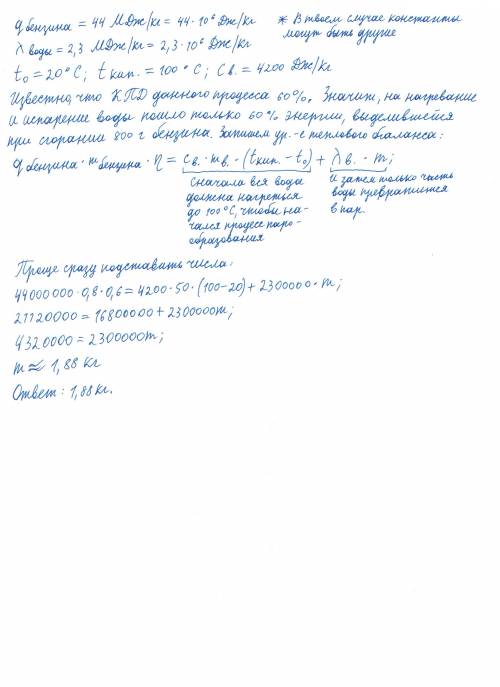 q бензина = 44 МДж/кг = 44·10⁶ Дж/кг
* В твоем случае константы
могут быть другие
λ воды = 2,3 МДж/кг = 2,3·10⁶ Дж/кг
t₀ = 20°С; t кип. = 100°С; Cв. = 4200 Дж/кг
Известно, что КПД данного процесса 60%. Значит, на нагревание
и испарение воды пошло только 60% энергии, выделившейся
при сгорании 800 г бензина. Запишем ур.-е теплового баланса:
q бензина · m бензина · η = cв. · mв. · (t кип. – t₀) + λв. · m;
Сначала вся вода
должна нагреться
до 100°С, чтобы на-
чался процесс паро-
образования
И затем только часть
воды превратится
в пар.
Проще сразу подставить числа:
44000000·0,8·0,6 = 4200·50·(100-20) + 2300000·m;
21120000 = 16800000 + 2300000m;
4320000 = 2300000m;
m ≈ 1,88 кг
Ответ: 1,88 кг.